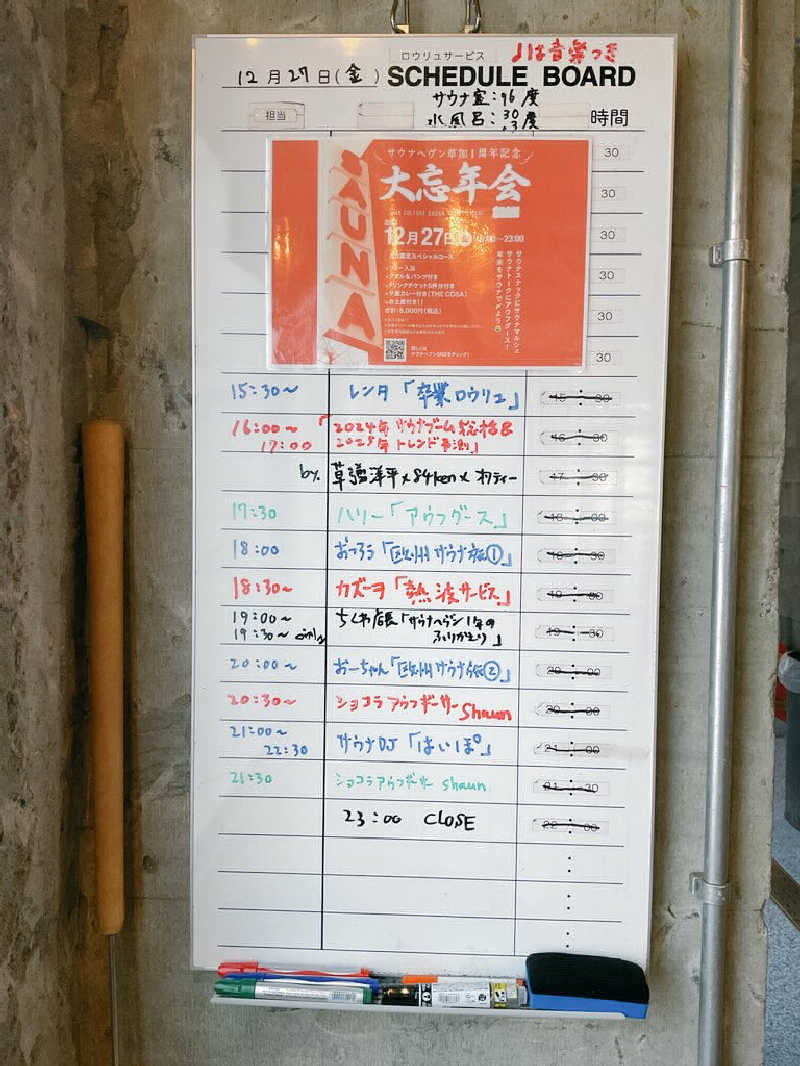 ロウリュサービス
♩は音楽つき
12月27日(金)
SCHEDULE BOARD
サウナ室:96度
水風呂:30.3度
担当
時間
サウナヘヴン草加1周年記念
大忘年会
SAUNA
12月27日
~23:00
サウナスナック&サウナマルシェ
サウナトークにアウフグース!
年末もサウナで〆よう
30
30
30
30
30
30
15:30~ レンタ「卒業ロウリュ」 15:30
16:00~17:00 「2024年サウナブーム総括&
2025年トレンド予測」 16:30
by. 草彅洋平×84ken× 17:30
17:30 ハリー「アウフグース」 18:00
18:00 おつろう「欧州サウナ旅①」
18:30~ カズーヲ「熱波サービス」
19:00~
19:30~ ちくわ店長「サウナヘヴン1年の
ふりかえり」 19:30
20:00~ おーちゃん「欧州サウナ旅②」 20:00
20:30~ ショコラアウフギーサーShaun
21:00~
22:30 サウナDJ「はいぽ」 21:00
21:30 ショコラアウフギーサー shaun 21:30
23:00 CLOSE 22:00